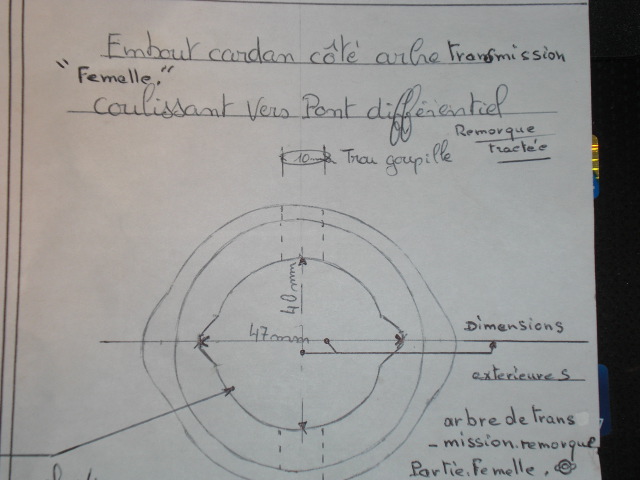 Embout cardan côté arbre transmission
"Femelle."
coulissant Vers Pont différentiel
Remorque
tractée
10mm Trou goupille
40mm
47mm
Dimensions
exterieures
arbre de trans
-mission.remorque
Partie.Femelle.